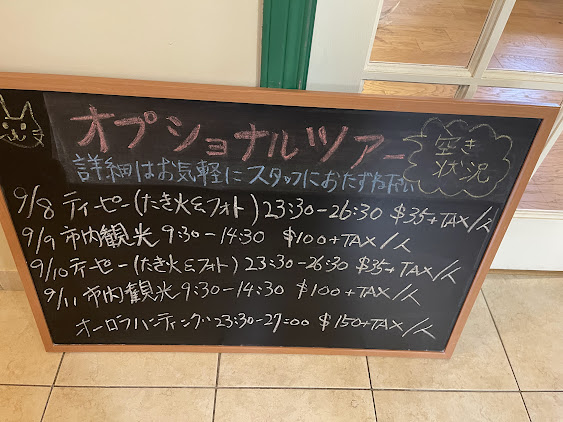 オプショナルツアー
空き
状況
詳細はお気軽にスタッフにおたずね下さい
9/8 ティーピー(たき火&フォト) 23:30-26:30 $35+TAX/人
9/9 市内観光 9:30-14:30 $100+TAX/人
9/10 ティーピー(たき火&フォト) 23:30-26:30 $35+TAX/人
9/11 市内観光 9:30-14:30 $100+TAX/人
オーロラハンティング 23:30-27:00 $150+TAX/人